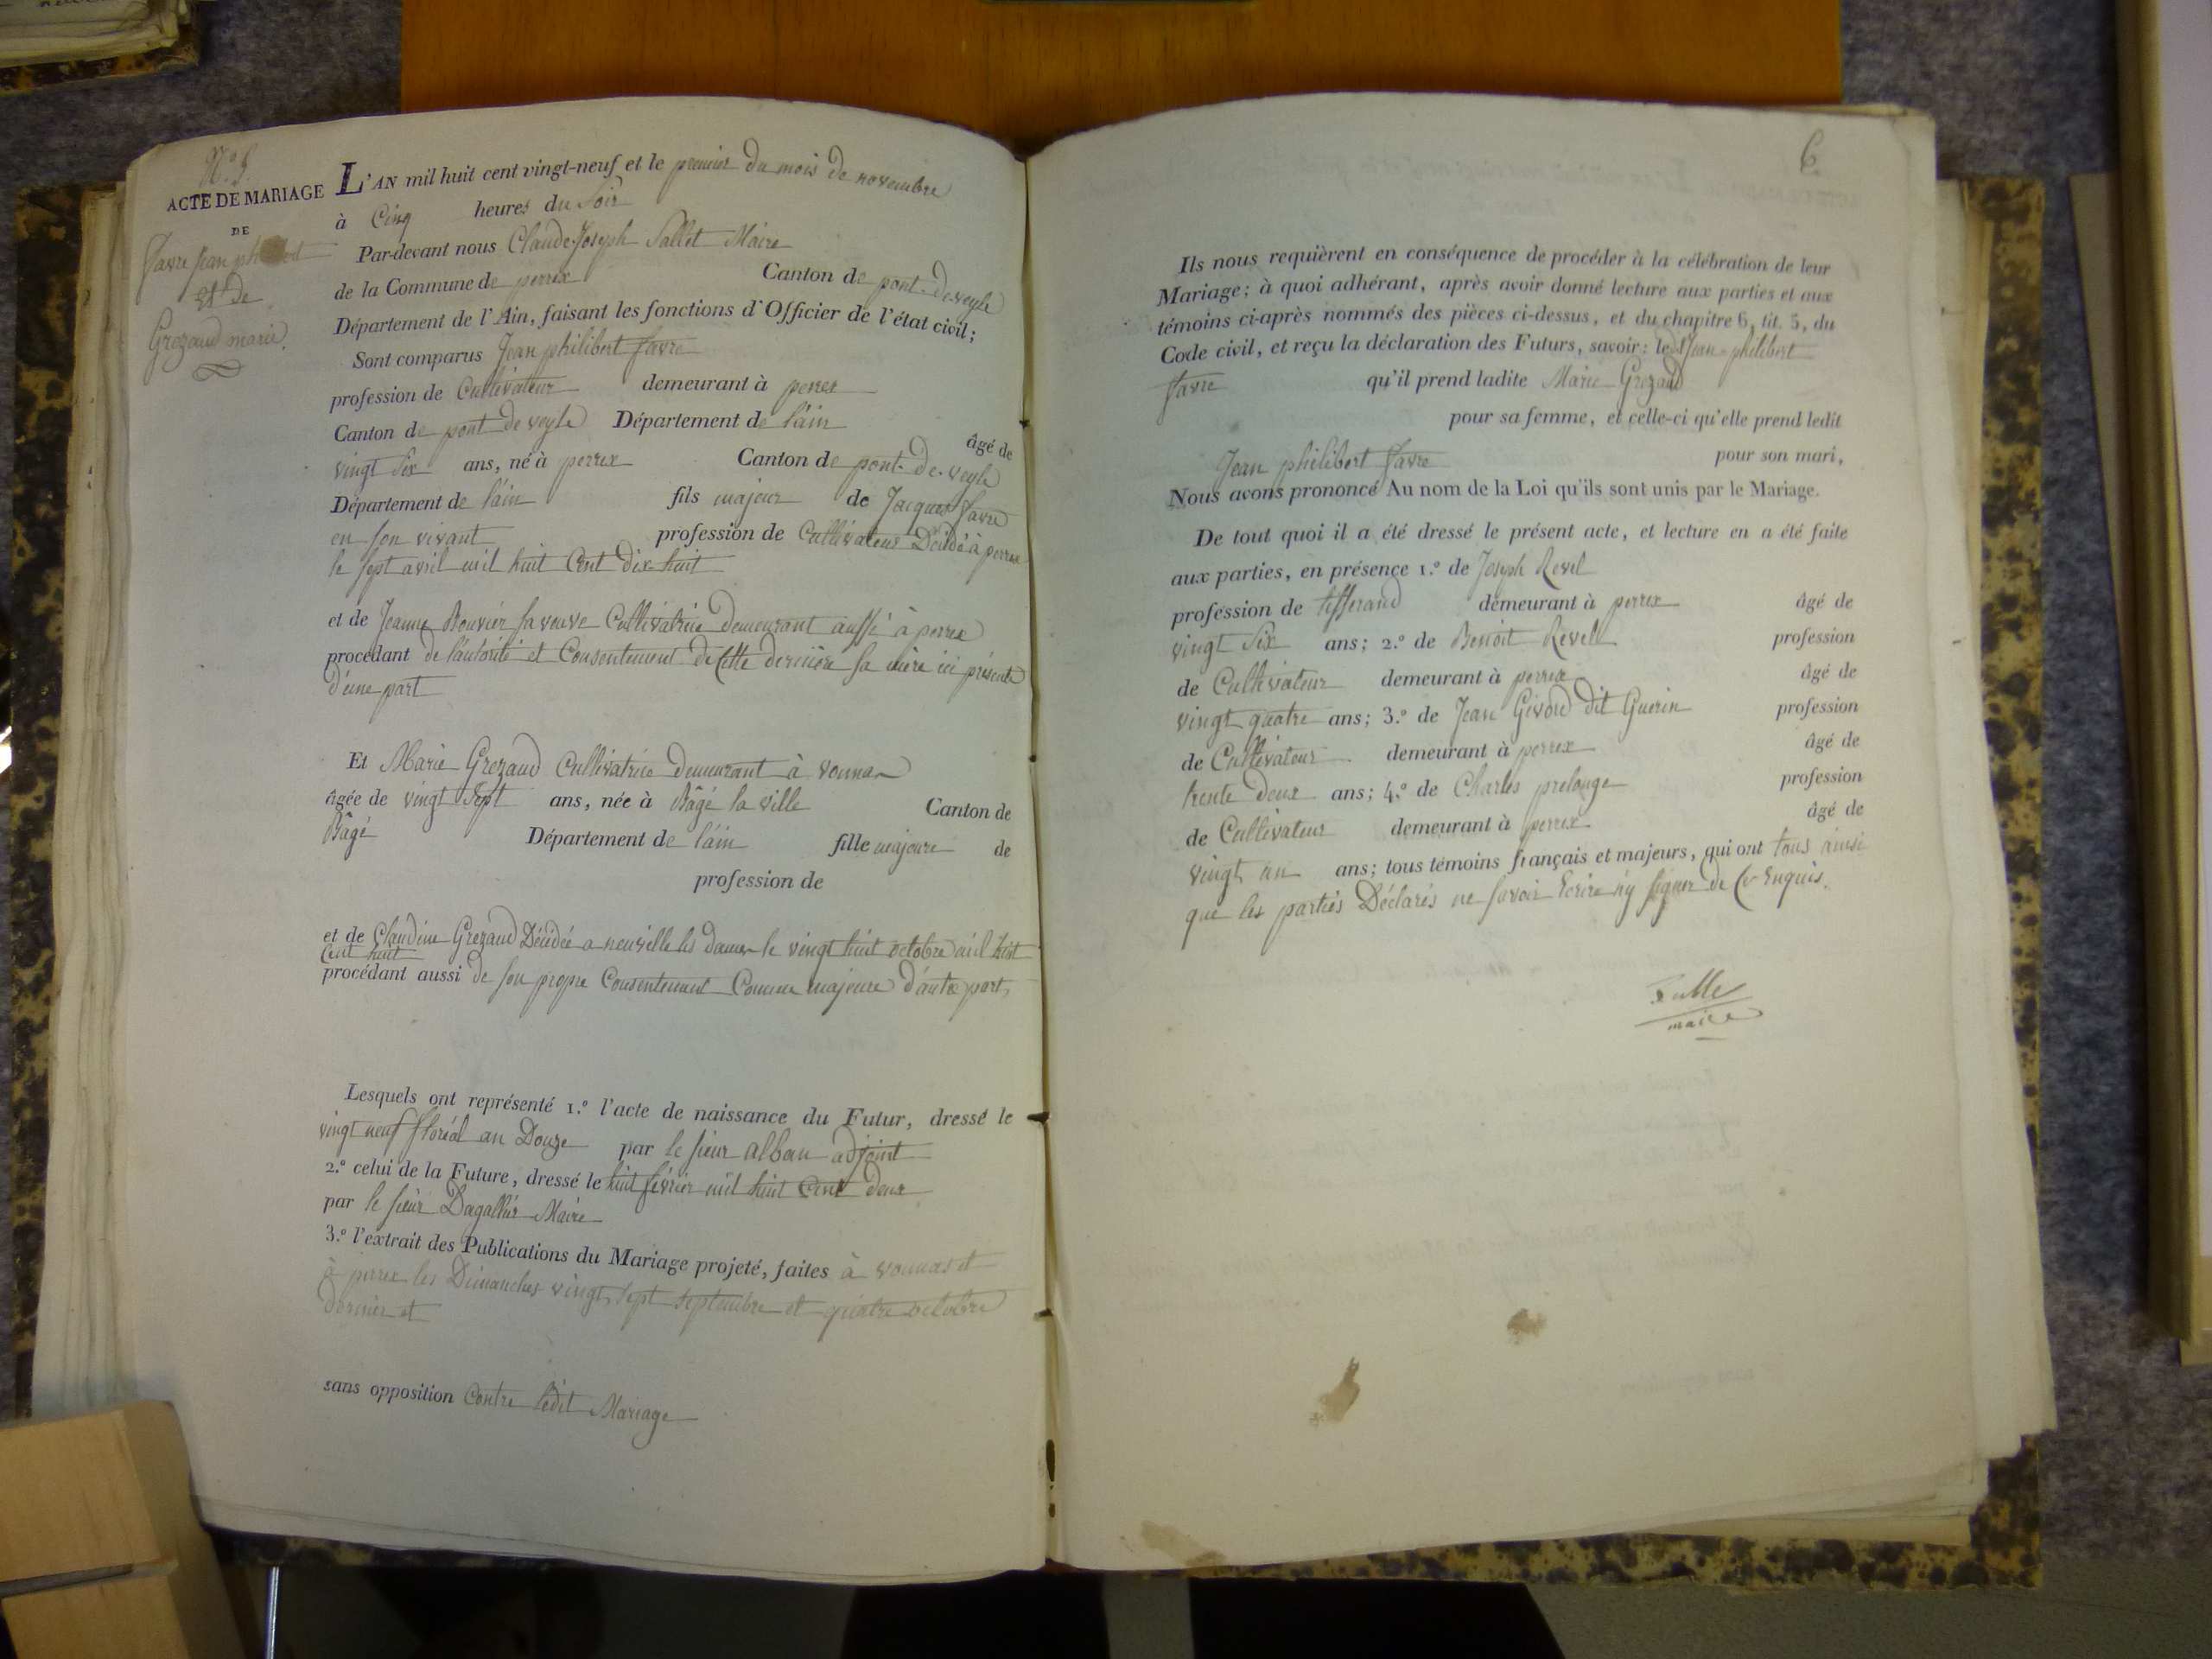 N.o 8.
ACTE DE MARIAGE
DE
favre Jean
et de
Grezaud marie.
L'AN mil huit cent vingt-neuf et le premier du mois de novembre
à Cinq heures du Soir
Par-devant nous Claude Joseph Sallet Maire
de la Commune de perrex Canton de pont-de-veyle
Département de l'Ain, faisant les fonctions d'Officier de l'état civil;
Sont comparus Jean philibert favre
profession de Cultivateur demeurant à perrex
Canton de pont de veyle Département de l'ain âgé de
vingt Six ans, né à perrex Canton de pont-de-veyle
Département de l'ain fils majeur de Jacques favre
en son vivant profession de Cultivateur Décédé à perrex
le sept avril mil huit Cent dix-huit
et de Jeanne Bouvier sa veuve Cultivatrice demeurant aussi à perrex
procédant de l'autorité et Consentement de Cette dernière sa mère ici présente
d'une part
Et Marie Grezaud Cultivatrice demeurant à vonnas
âgée de vingt Sept ans, née à Bâgé la ville Canton de
Bâgé Département de l'ain fille majeure de
profession de
et de Claudine Grezaud Décédée a neuville les dames le vingt huit octobre mil huit
Cent huit
procédant aussi de son propre Consentement Comme majeure d'autre part,
Lesquels ont représenté 1.o l'acte de naissance du Futur, dressé le
vingt neuf floréal an Douze par le sieur alban adjoint
2.o celui de la Future, dressé le huit février mil huit Cent deux
par le sieur Dagallier Maire
3.o l'extrait des Publications du Mariage projeté, faites à vonnas et
à perrex les Dimanches vingt-sept septembre et quatre octobre
dernier et
sans opposition Contre ledit Mariage
6.
Ils nous requièrent en conséquence de procéder à la célébration de leur
Mariage; à quoi adhérant, après avoir donné lecture aux parties et aux
témoins ci-après nommés des pièces ci-dessus, et du chapitre 6, tit. 5, du
Code civil, et reçu la déclaration des Futurs, savoir: led. Jean-philibert
favre qu'il prend ladite Marie Grezaud
pour sa femme, et celle-ci qu'elle prend ledit
Jean philibert favre pour son mari,
Nous avons prononcé Au nom de la Loi qu'ils sont unis par le Mariage.
De tout quoi il a été dressé le présent acte, et lecture en a été faite
aux parties, en présence 1.o de Joseph Revel
profession de tisserand demeurant à perrex âgé de
vingt Six ans; 2.o de Benoit Revel profession
de Cultivateur demeurant à perrex âgé de
vingt quatre ans; 3.o de Jean Givord dit Guerin profession
de Cultivateur demeurant à perrex âgé de
trente deux ans; 4.o de Charles prelonge profession
de Cultivateur demeurant à perrex âgé de
vingt un ans; tous témoins français et majeurs, qui ont tous ainsi
que les parties Déclarés ne savoir Ecrire n'y signer de Ce Enquis.
maire